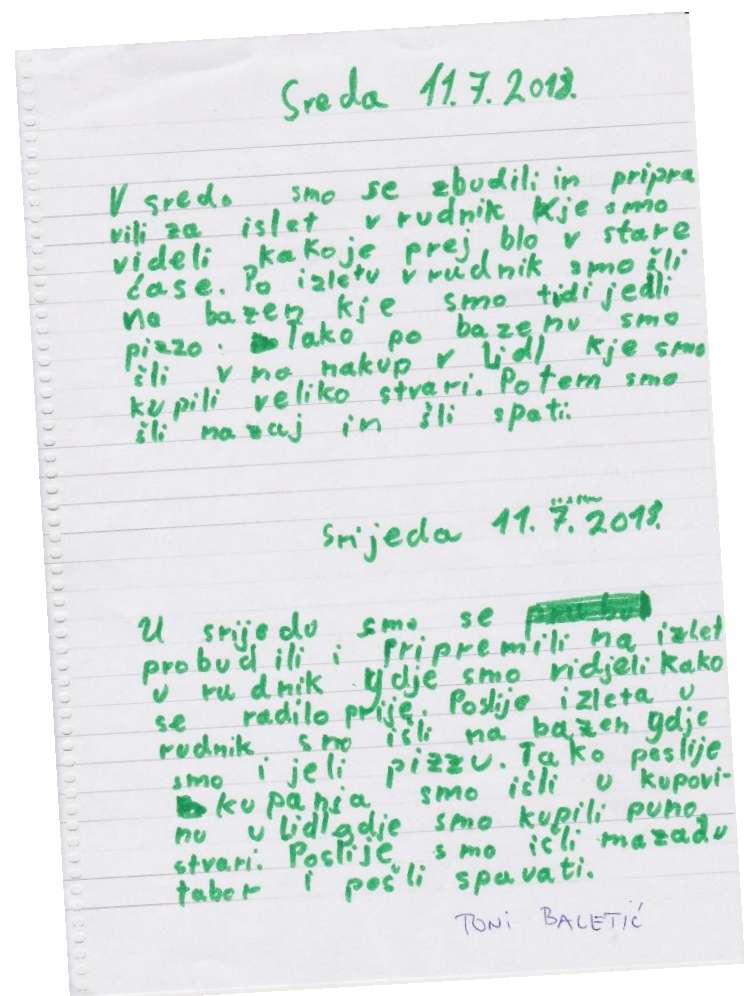 Sreda 11.7.2018.
V sredo smo se zbudili in pripra
vili za islet v rudnik kje smo
videli kakoje prej blo v stare
čase. Po izletu v rudnik smo šli
na bazen kje smo tudi jedli
pizzo. Tako po bazenu smo
šli v na nakup v Lidl kje smo
kupili veliko stvari. Potem smo
šli nazaj in šli spati.
Srijeda 11.7.2018.
U srijedu smo se
probudili i pripremili na izlet
u rudnik gdje smo vidjeli kako
se radilo prije. Poslije izleta u
rudnik smo išli na bazen gdje
smo i jeli pizzu. Tako poslije
kupanja smo išli u kupovi-
nu u lidl gdje smo kupili puno
stvari. Poslije smo išli nazad u
tabor i pošli spavati.
TONI BALETIĆ